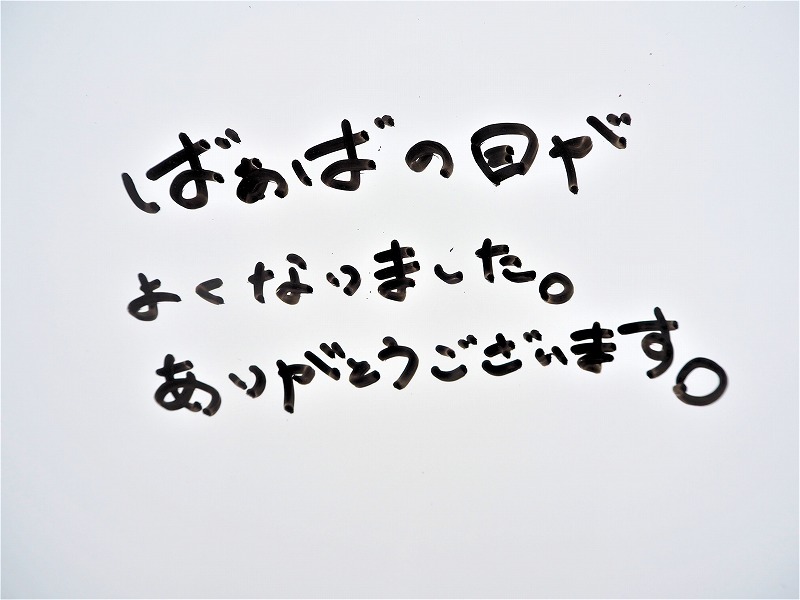 ばあばの目が
よくなりました。
ありがとうございます。